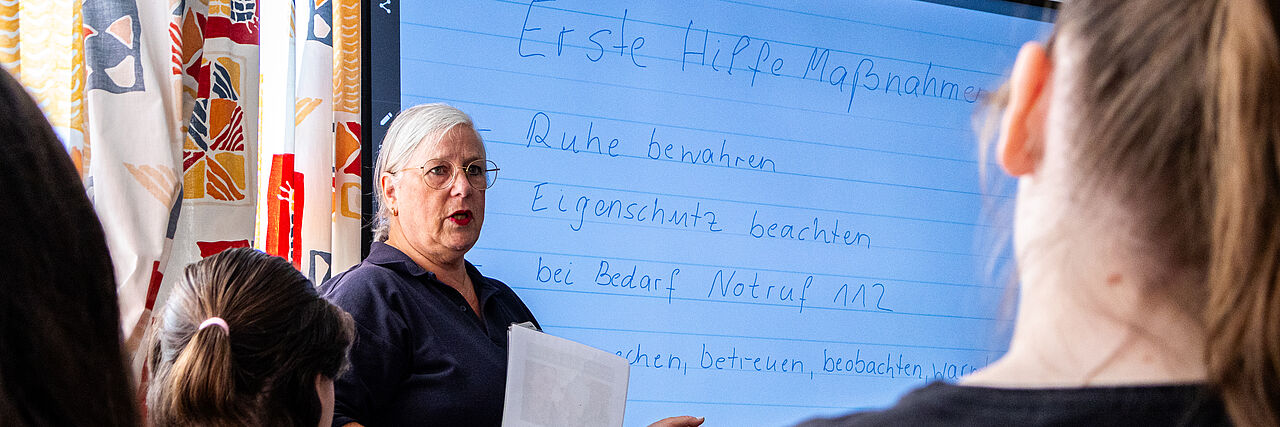 Erste Hilfe Maßnahmen
- Ruhe bewahren
Eigenschutz beachten
bei Bedarf Notruf 112
betreuen, beobachten,